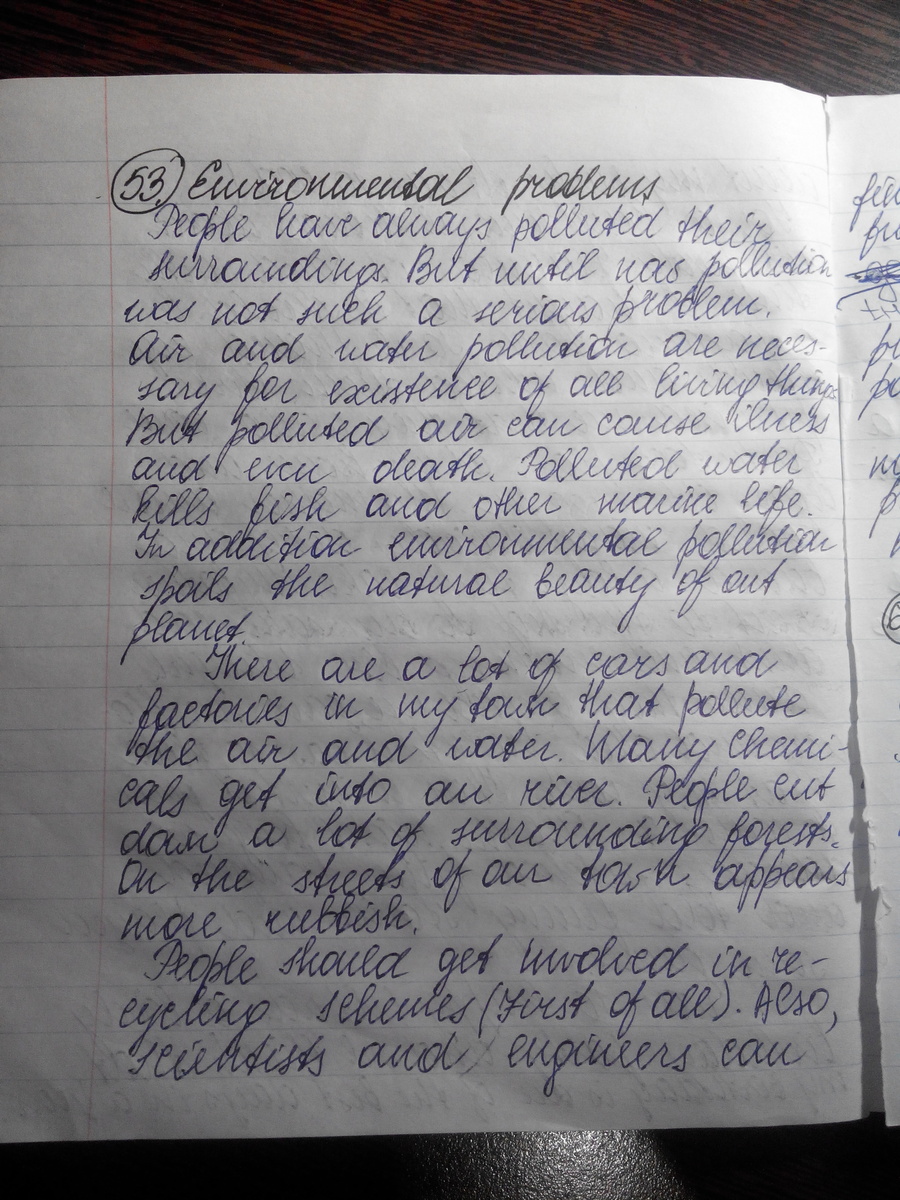 53. Environmental problems
People have always polluted their
surroundings. But until now pollution
was not such a serious problem.
Air and water pollution are neces-
sary for existence of all living things.
But polluted air can cause ilness
and even death. Polluted water
kills fish and other marine life.
In addition environmental pollution
spoils the natural beauty of out
planet.
There are a lot of cars and
factories in my town that pollute
the air and water. Many chemi-
cals get into our river. People cut
down a lot of surrounding forests.
On the streets of our town appears
more rubbish.
People should get involved in re-
cycling schemes (First of all). Also,
scientists and engineers can